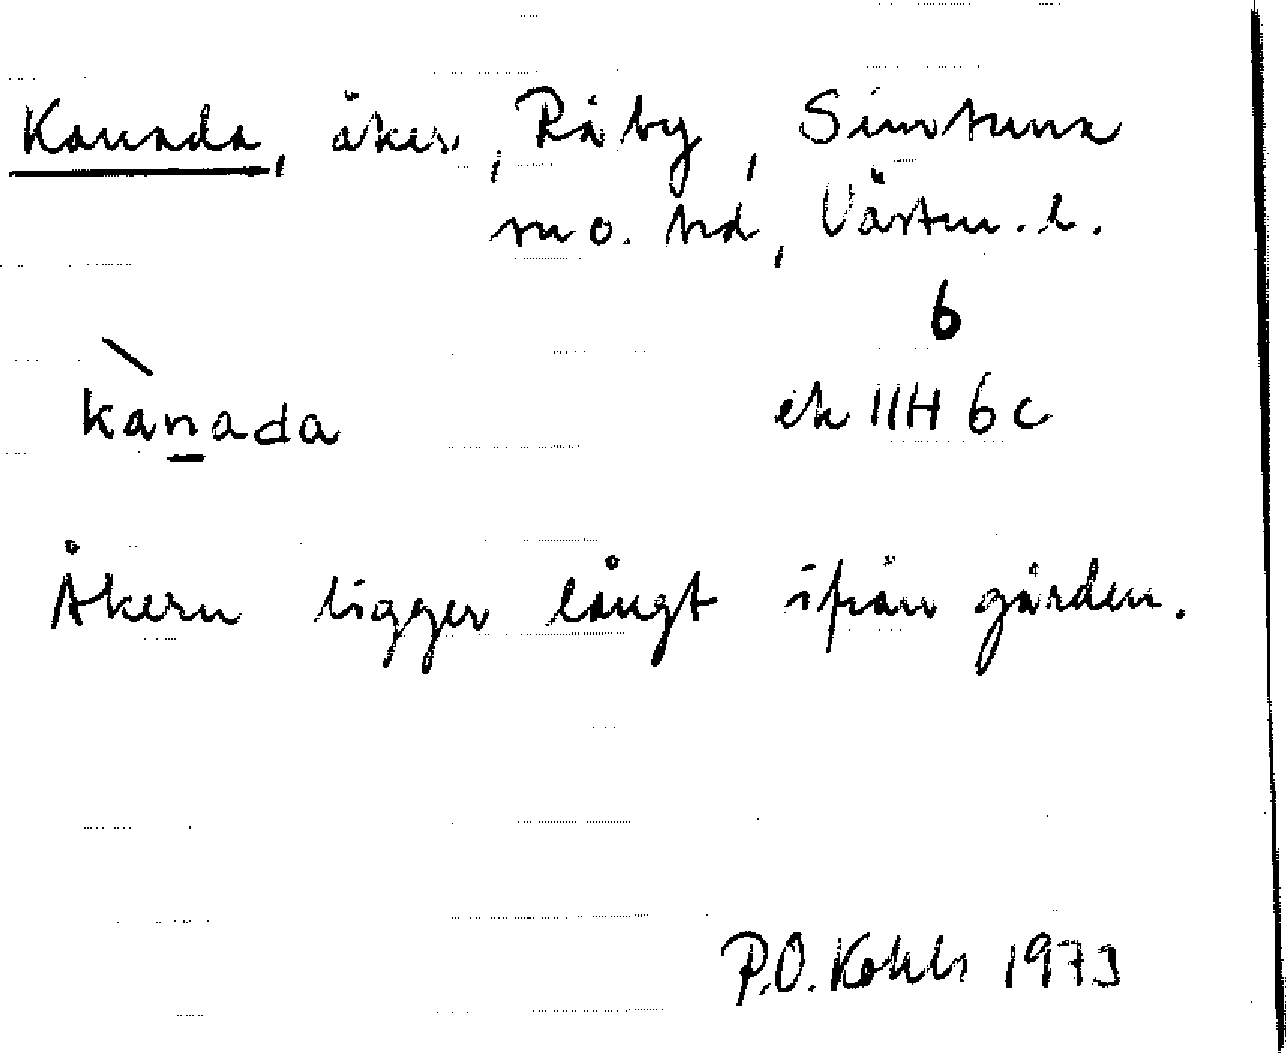 Kanada, åker, Råby, Simtuna
sn o. hd, Västm. l.
6
kànada
ek 11H 6c
Åkern ligger långt ifrån gården.
P.O. 1973